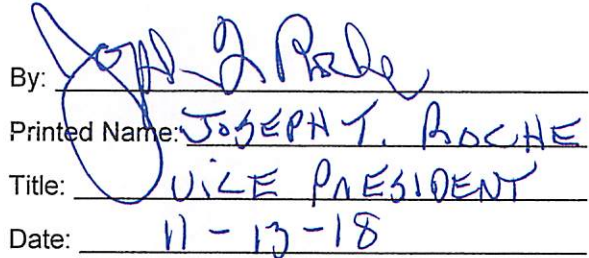 By: Joseph T. Roche
Printed Name: JOSEPH T. ROCHE
Title: VICE PRESIDENT
Date: 11-13-18